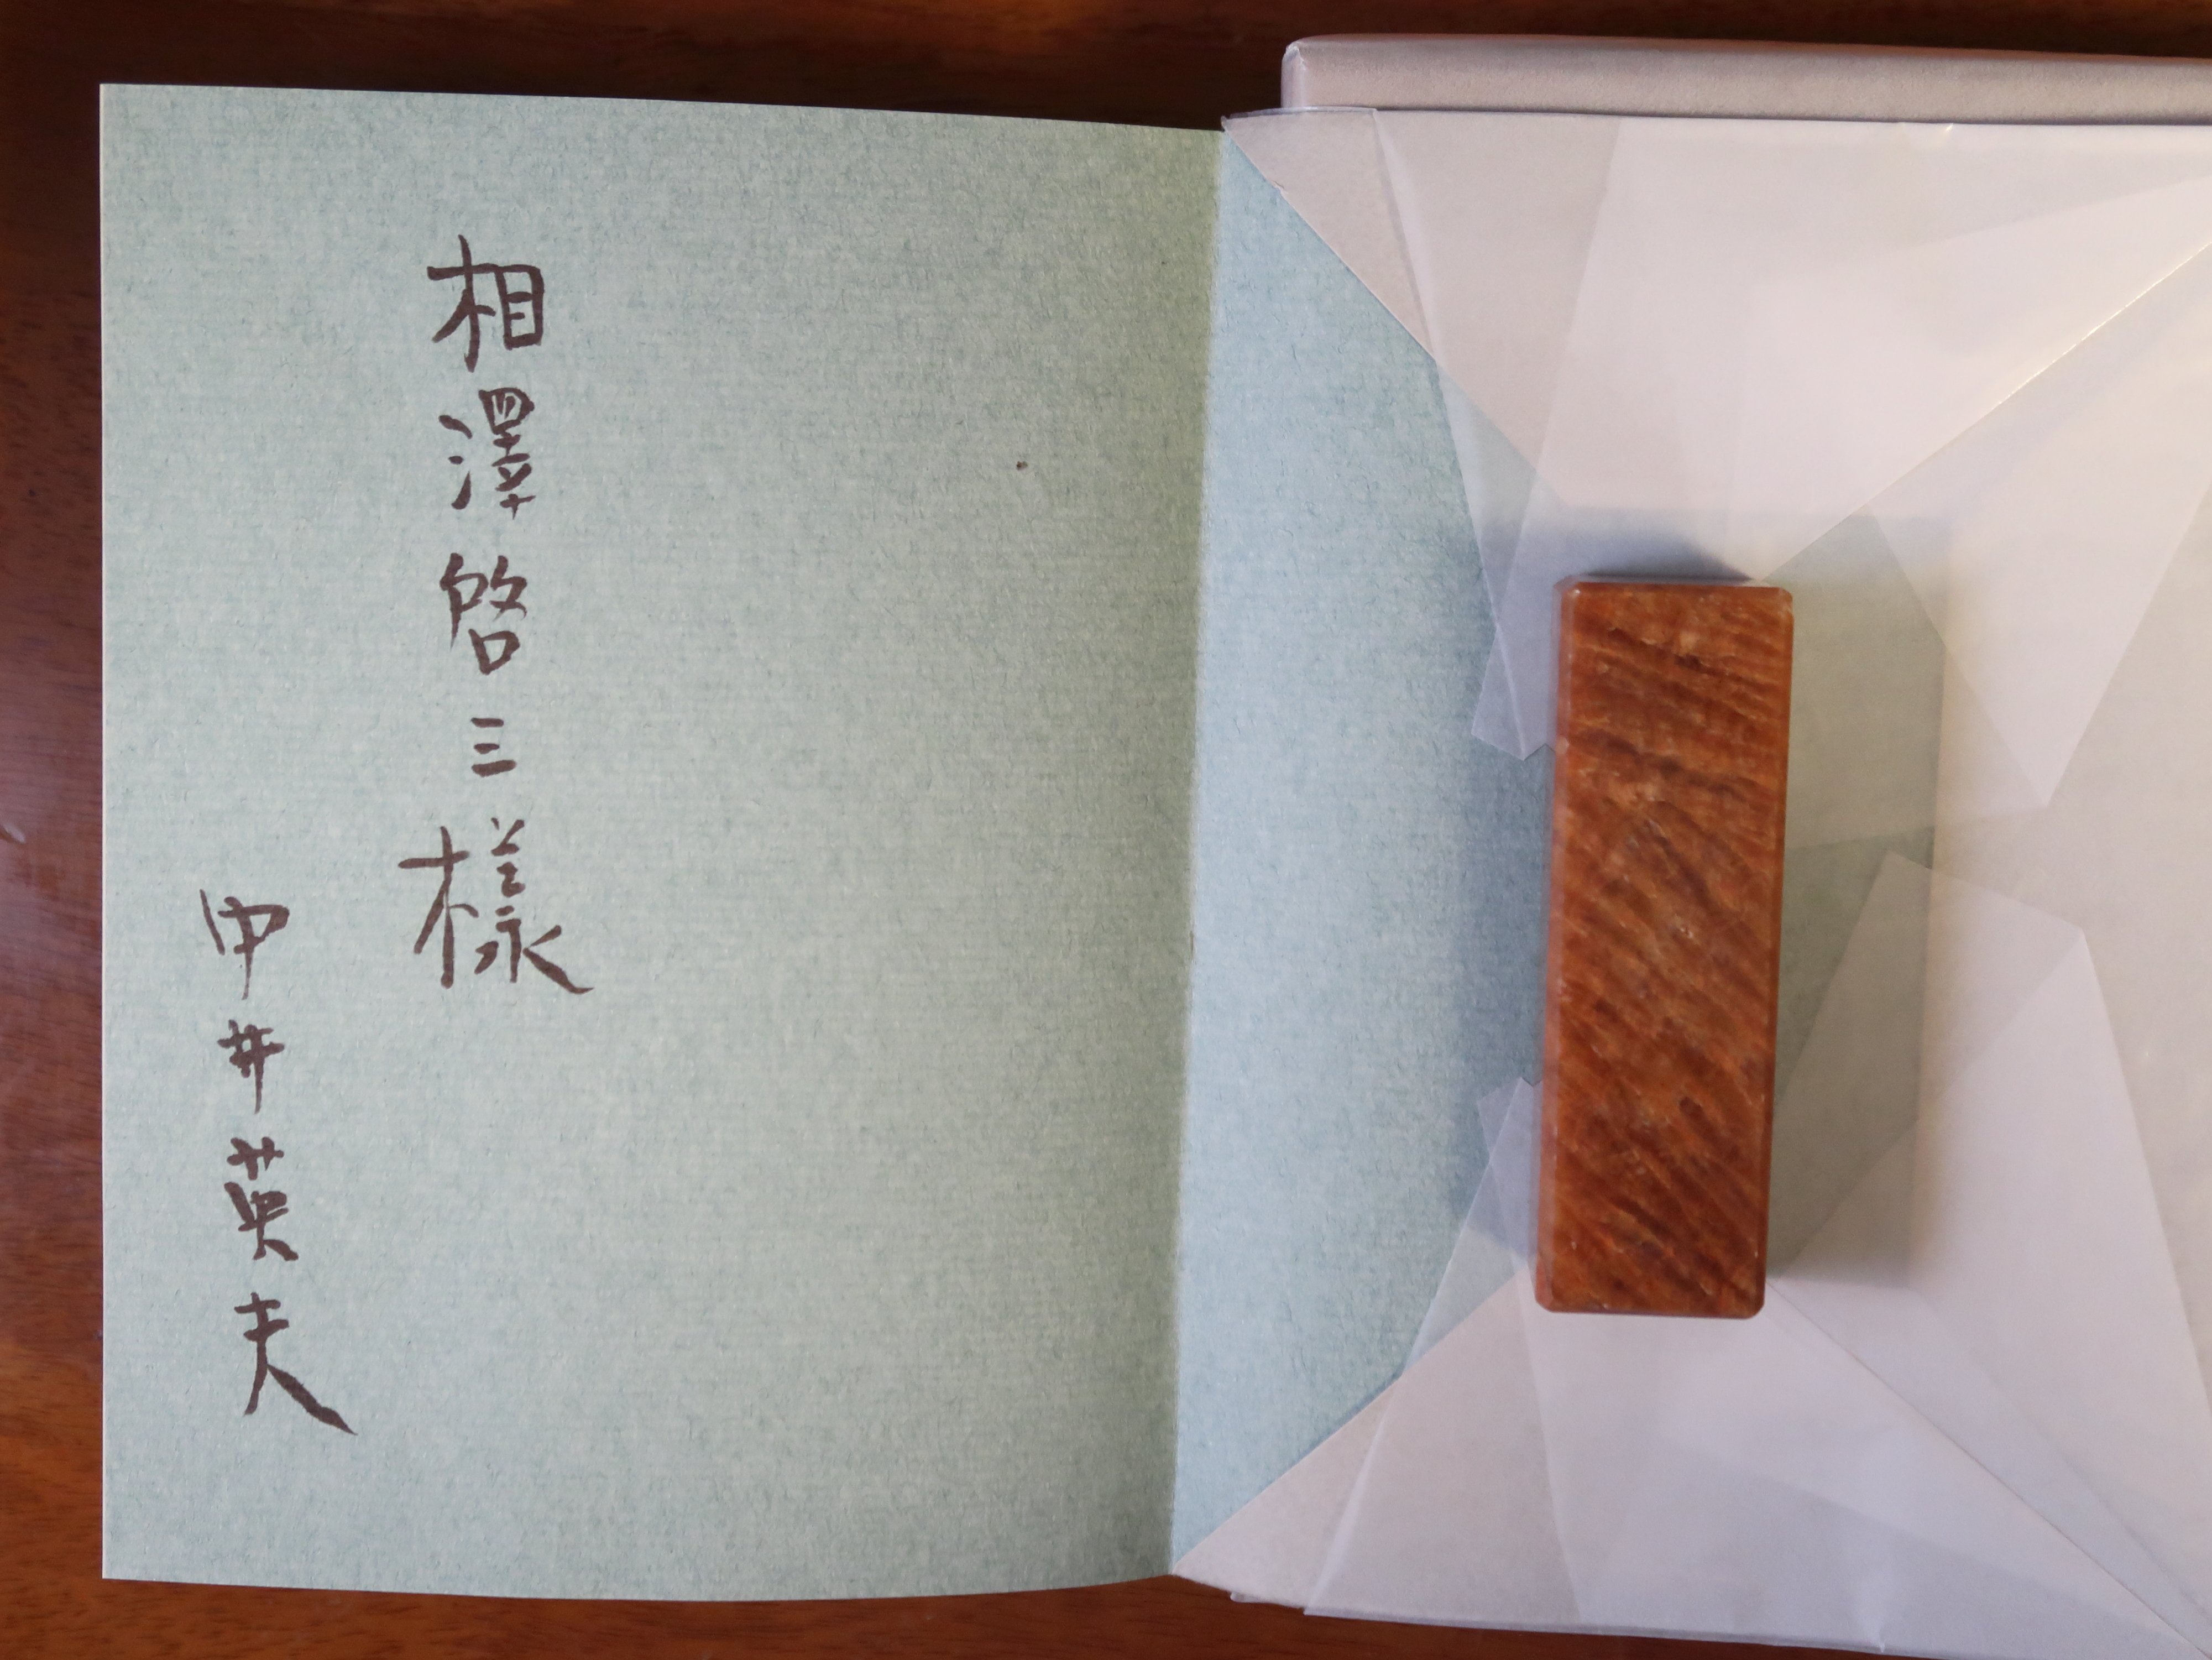 相澤啓三様
中井英夫